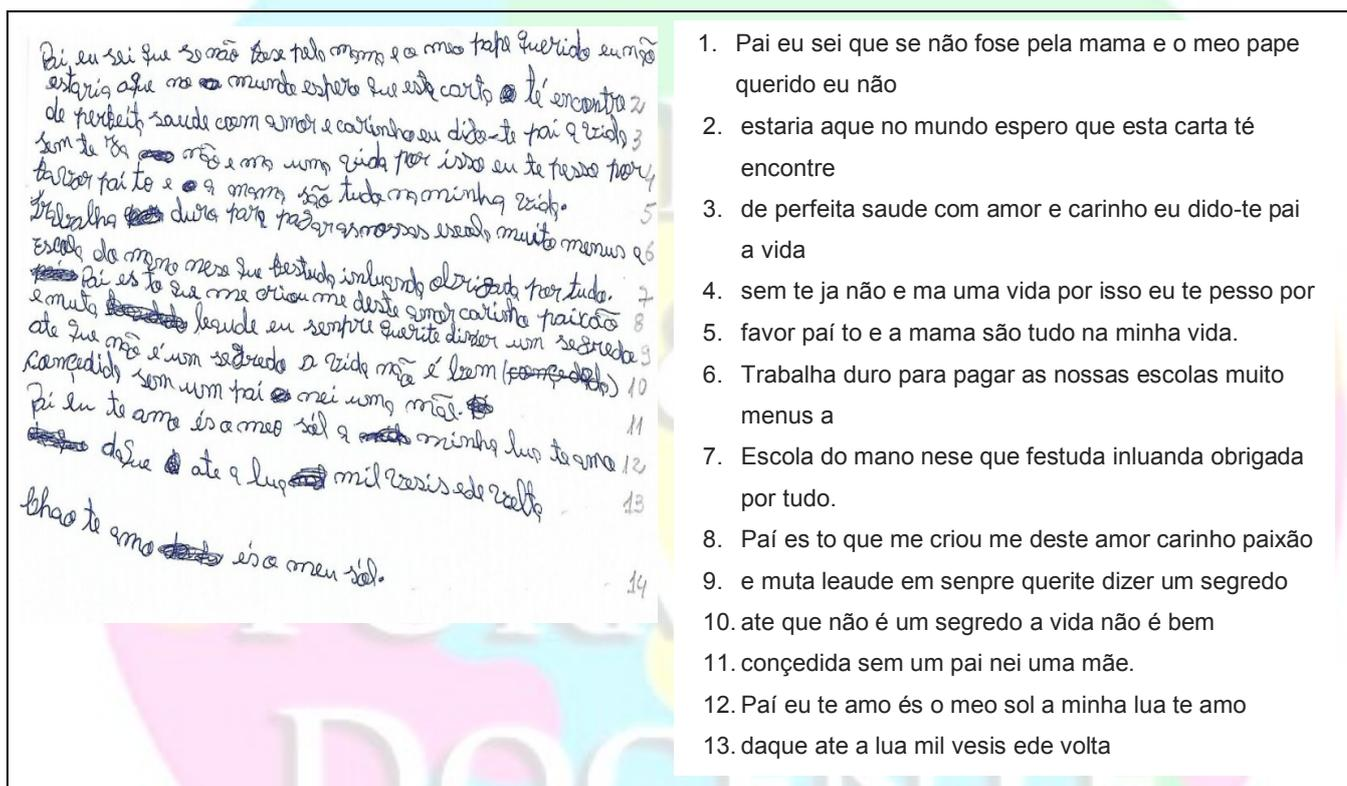 Pai eu sei que se não fose pelo mama e o meo pape querido eu não
estaria aque no mundo espero que esta carta té encontre 2
de perfeita saude com amor e carinho eu dido-te pai a vida 3
sem te ja não e ma uma vida por isso eu te pesso por 4
favor pai to e a mama são tudo na minha vida. 5
Trabalha duro para pagar as nossas escola muito menus a 6
Escola do mano nese que festuda inluanda obrigada por tudo. 7
Pai es to que me criou me deste amor carinho paixão 8
e muta leaude eu sempre querite dizer um segredo 9
ate que não é um segredo a vida não é bem 10
conçedida sem um pai nei uma mãe. 11
Pai eu te amo és o meo sól a minha lua te amo 12
daque ate a lua mil vesis ede volta 13
Chao te amo és o meu sól. 14
1. Pai eu sei que se não fose pela mama e o meo pape
querido eu não
2. estaria aque no mundo espero que esta carta té
encontre
3. de perfeita saude com amor e carinho eu dido-te pai
a vida
4. sem te ja não e ma uma vida por isso eu te pesso por
5. favor paí to e a mama são tudo na minha vida.
6. Trabalha duro para pagar as nossas escolas muito
menus a
7. Escola do mano nese que festuda inluanda obrigada
por tudo.
8. Paí es to que me criou me deste amor carinho paixão
9. e muta leaude em senpre querite dizer um segredo
10. ate que não é um segredo a vida não é bem
11. conçedida sem um pai nei uma mãe.
12. Paí eu te amo és o meo sol a minha lua te amo
13. daque ate a lua mil vesis ede volta
DOCENTE